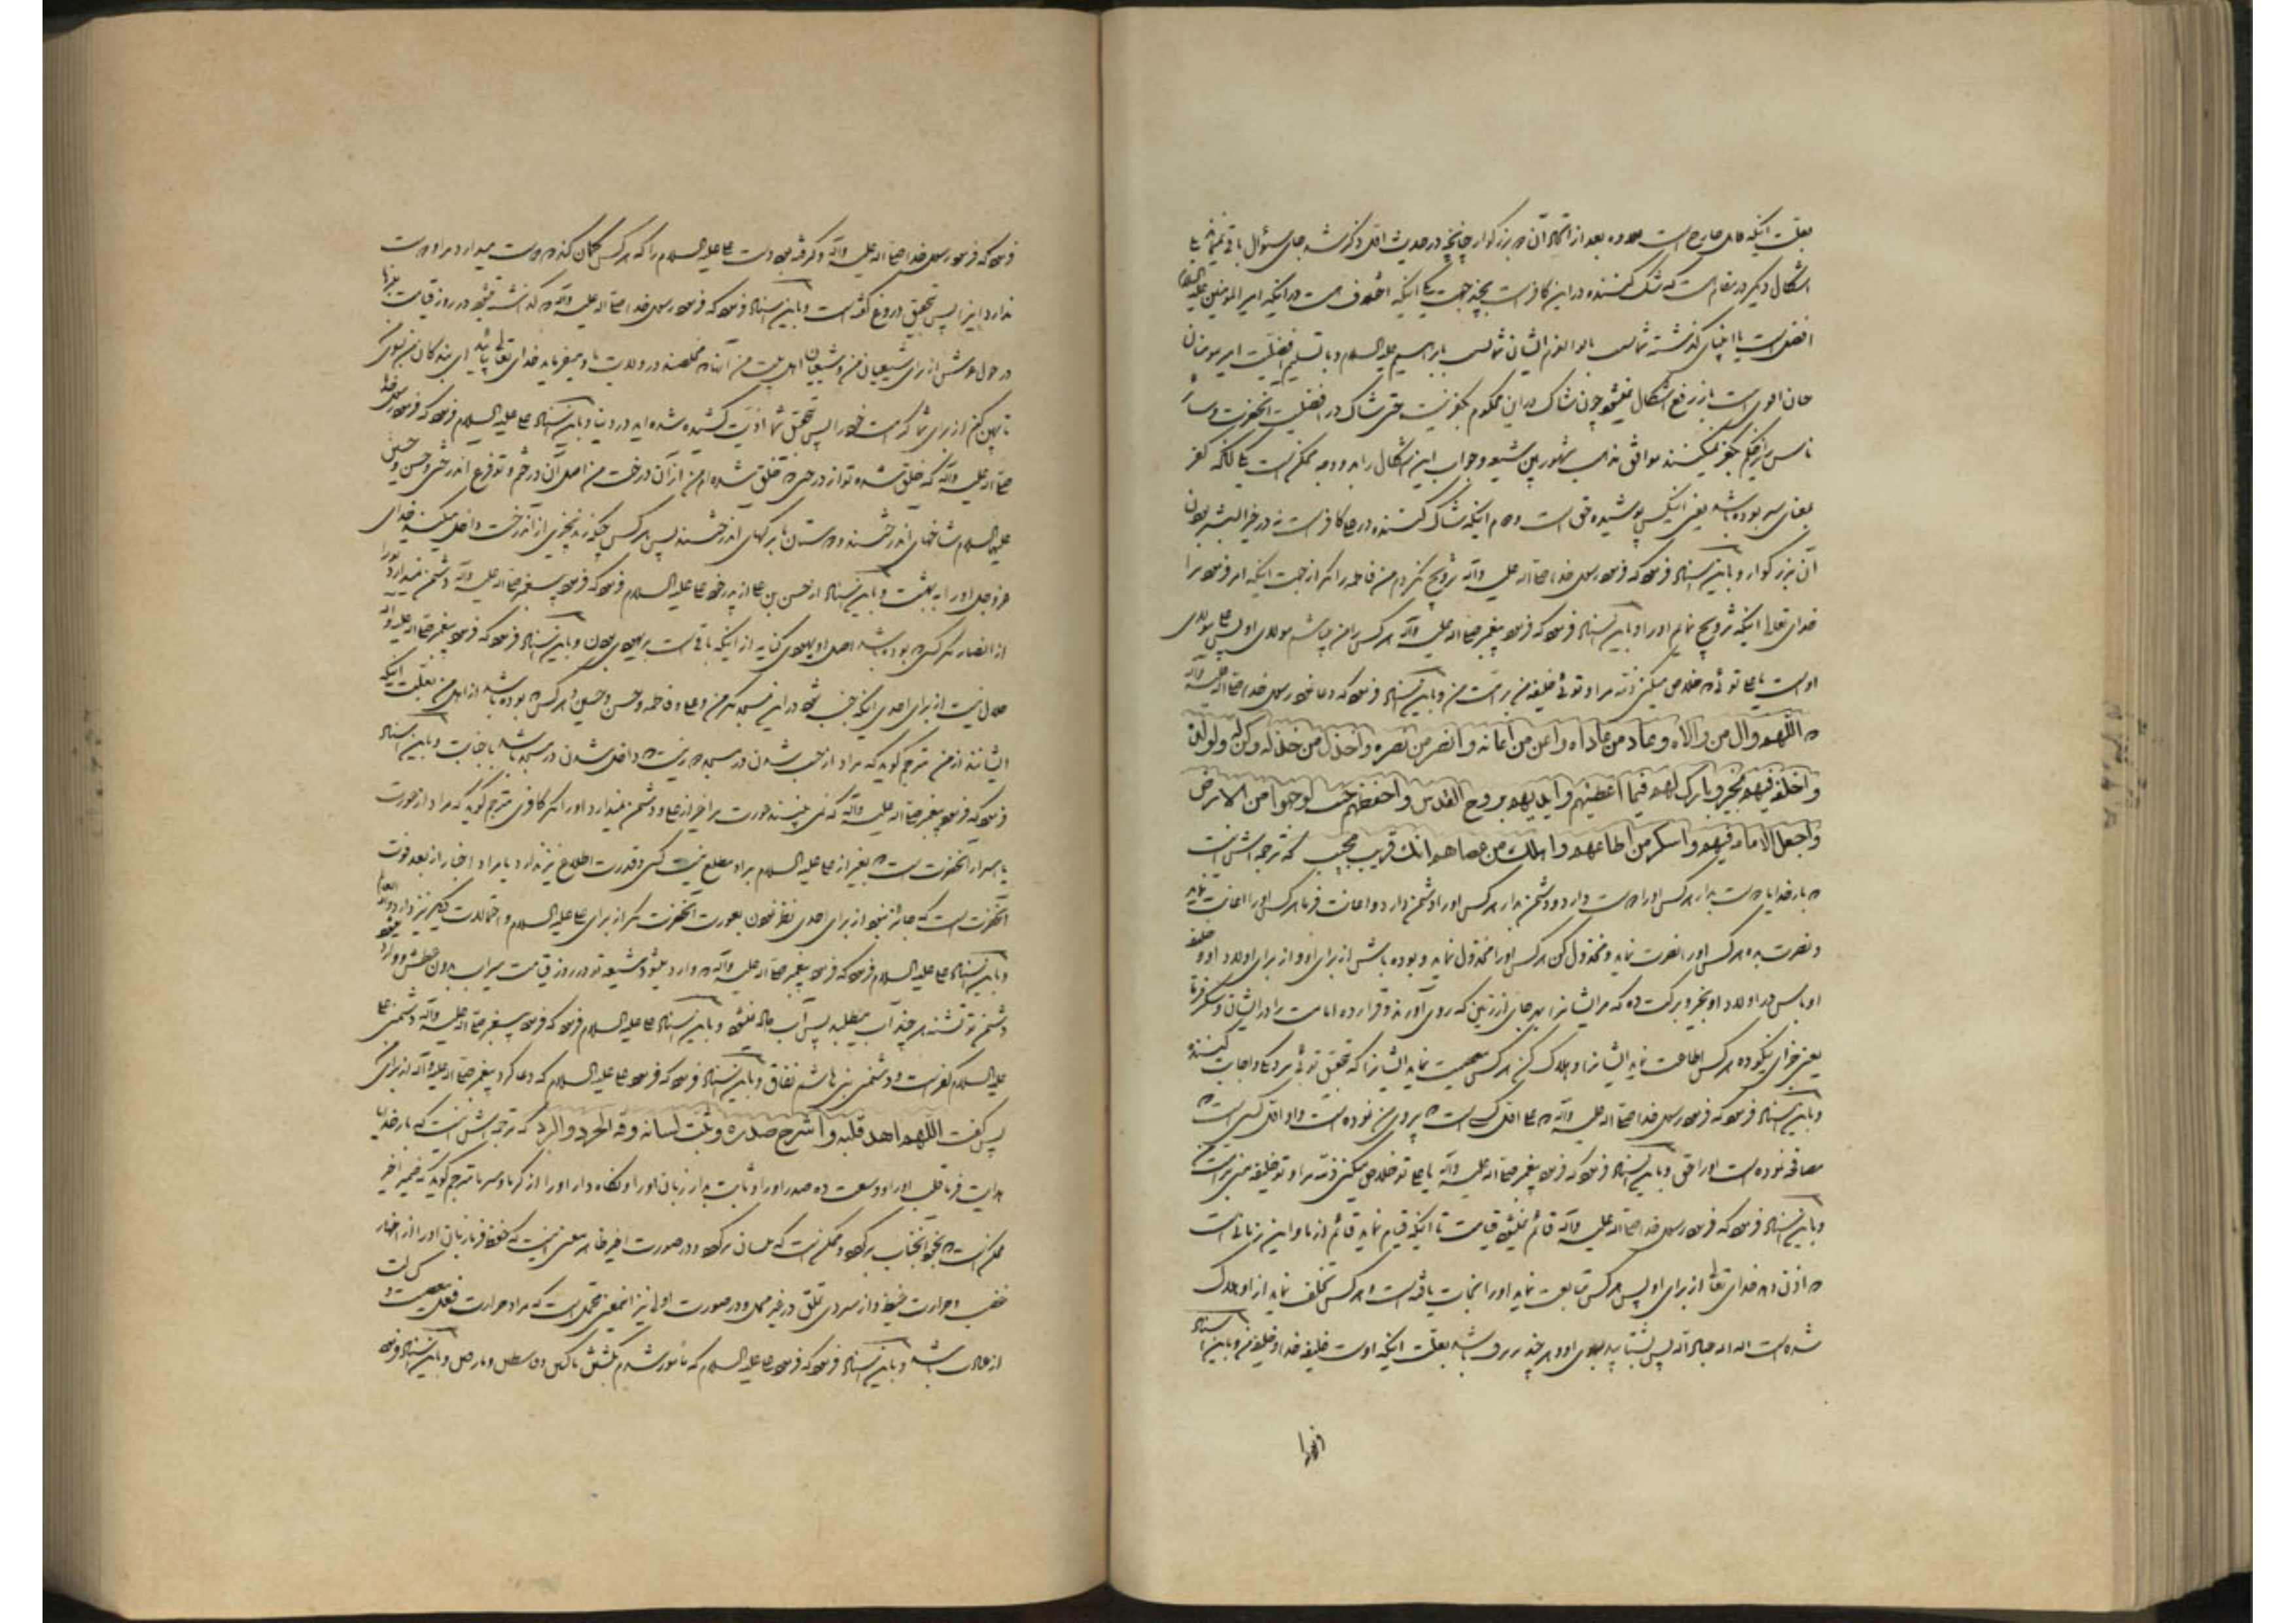 بعلت اینکه کامل صادر است بعد از آن بزرگوار چنانچه در حدیث اول ذکر شد جای سؤال باقی
اشکال دیگر در مقام است که شک کننده در این کافر است بچند جهت یکی اینکه اختلاف است در اینکه امیر المومنین علیه السلام
افضل است یا انبیای گذشته شما اولوالعزم ایشان ابراهیم علیه السلام و با تسلیم افضلیت امیر مومنان
باز رفع اشکال نمیشود چون شاک در این محکوم بکفر نیست حتی شاک در افضلیت آنحضرت
ناس نیز حکم بکفر نمیکنند موافق مذهب مشهور بین شیعه و جواب این اشکال را بدو وجه ممکن است یکی آنکه کفر
بمعنی ستر بوده باشد یعنی اینکس پوشیده حق است دوم اینکه شاک کننده در علی کافر است نه در خیر البشر بودن
آن بزرگوار و باین اسناد فرمود که فرمود رسول خدا صلی الله علیه وآله تزویج نکردم من فاطمه را مگر از جهت اینکه امر فرمود مرا
خدای تعالی اینکه تزویج نمایم او را و باین اسناد فرمود که فرمود پیغمبر صلی الله علیه وآله هر کس را من باشم مولای او پس علی مولای
اوست یا علی توئی که خلاص میکنی ذمه مرا و توئی خلیفه من بر امت من و باین اسناد فرمود که دعا نمود رسول خدا صلی الله علیه وآله
که اللهم وال من والاه وعاد من عاداه واعن من اعانه وانصر من نصره واخذل من خذله وکن له ولولده
واخلفه فیهم بخیر وبارک لهم فیما اعطیتهم وایدهم بروح القدس واحفظهم حیث توجهوا من الارض
واجعل الامامة فیهم واشکر من اطاعهم واهلک من عصاهم انک قریب مجیب که ترجمه اش اینست
که بار خدایا دوست بدار هر کس او را دوست دارد و دشمن بدار هر کس او را دشمن دارد و اعانت فرما هر کس او را اعانت نماید
و نصرت بده هر کس او را نصرت نماید و مخذول کن هر کس او را مخذول نماید و بوده باش از برای او و از برای اولاد او و خلیفه
او باش در اولاد او بخیر و برکت ده که مر ایشانرا بهر جای از زمین که روی آورند و قرار ده امامت را در ایشان و شکر فرما
یعنی جزای نیکو ده هر کس اطاعت نماید ایشانرا و هلاک کن هر کس معصیت نماید ایشانرا که بتحقیق توئی نزدیک و اجابت کننده
و باین اسناد فرمود که فرمود رسول خدا صلی الله علیه وآله که علی اول کسی است که پیروی من نموده است و او اول کسی است که
مصافحه نموده است او را حق و باین اسناد فرمود که فرمود پیغمبر صلی الله علیه وآله یا علی تو خلاص میکنی ذمه مرا و تو خلیفه منی بر امت من
و باین اسناد فرمود که فرمود رسول خدا صلی الله علیه وآله قائم نمیشود قیامت تا اینکه قیام نماید قائم از ما و این زمانی است
که اذن دهد خدای تعالی از برای او پس هر کس متابعت نماید او را نجات یافته است و هر کس تخلف نماید از او هلاک
شده است الله الله عباد الله پس بشتابید بسوی او و هر چند بر برف باشد بعلت اینکه اوست خلیفه خدا و خلیفه من و باین اسناد
فرمود که فرمود رسول خدا صلی الله علیه وآله و گرفته بود دست علی علیه السلام را که هر کس گمان کند که دوست میدارد مرا و دوست
ندارد اینرا پس بتحقیق دروغ گفته است و باین اسناد فرمود که فرمود رسول خدا صلی الله علیه وآله که گذاشته میشود در روز قیامت منبرها
در حول عرش از برای شیعیان من و شیعیان اهل بیت من آنان که مخلصند در ولایت ما و میفرماید خدای تعالی بیائید ای بندگان من بسوی من
تا پهن کنم از برای شما کرامت خود را پس بتحقیق شما اذیت کشیده شده اید در دنیا و باین اسناد علی علیه السلام فرمود که فرمود رسول خدا
صلی الله علیه وآله که خلق شده تو از درختی که خلق شده ام من از آن درخت من اصل آن درختم و تو فرع آندرختی و حسن و حسین
علیهما السلام شاخهای آندرختند و دوستان ما برگهای آندرختند پس هر کس چنگ زند بچیزی از آندرخت داخل میکند خدای
عز و جل او را به بهشت و باین اسناد از حسین بن علی از پدر خود علی علیه السلام فرمود که فرمود پیغمبر صلی الله علیه وآله دشمن نمیدارد تو را
از انصار مگر کسی که بوده باشد اصل او یهودی کنایه از اینکه باقی است بر یهودی بودن و باین اسناد فرمود که فرمود پیغمبر صلی الله علیه وآله
حلال نیست از برای احدی اینکه جنب شود در این مسجد مگر من و علی و فاطمه و حسن و حسین و هر کس که بوده باشد از اهل من بعلت اینکه
ایشانند از من مترجم گوید که مراد از جنب شدن در مسجد داخل شدن در مسجد باشد با جنابت و باین اسناد
فرمود که فرمود پیغمبر صلی الله علیه وآله که نمی بیند عورت مرا غیر از علی و دشمن نمیدارد او را مگر کافر مترجم گوید که مراد از عورت
یا اسرار آنحضرت است که بغیر از علی علیه السلام بر او مطلع نیست کسی و قدرت اطلاع نیز ندارد یا مراد اخبار از بعد فوت
آنحضرت است که جایز نبود از برای احدی نظر نمودن بعورت آنحضرت مگر از برای علی علیه السلام و احتمالات دیگر نیز دارد والله العالم
و باین اسناد علی علیه السلام فرمود که فرمود پیغمبر صلی الله علیه وآله که وارد میشود شیعه تو در روز قیامت سیراب بدون عطش و وارد میشود
دشمن تو تشنه هر چند آب میطلبد پس آب داده نمیشود و باین اسناد علی علیه السلام فرمود که فرمود پیغمبر صلی الله علیه وآله دشمنی علی
علیه السلام کفر است و دشمنی بنی هاشم نفاق و باین اسناد فرمود که فرمود علی علیه السلام که دعا کرد پیغمبر صلی الله علیه وآله از برای من
پس گفت اللهم اهد قلبه واشرح صدره وثبت لسانه وقه الحر والبرد که ترجمه اش اینست که بار خدایا
هدایت فرما قلب او را و وسعت ده صدر او را و ثابت بدار زبان او را و نگاه دار او را از گرما و سرما مترجم گوید که ضمیر اخیر
ممکن است که بخود آنجناب برگردد و ممکن است که بلسان برگردد و در صورت اخیر ظاهر معنی اینست که حفظ فرما زبان او را از اظهار
غضب و حرارت غیظ و از سردی تملق در غیر محل و در صورت اولی نیز اینمعنی محتمل است که مراد حرارت فعل معصیت و کسالت
از عبادت باشد و باین اسناد فرمود که فرمود علی علیه السلام که مأمور شدم بکشتن ناکثین و قاسطین و مارقین و باین اسناد فرمود